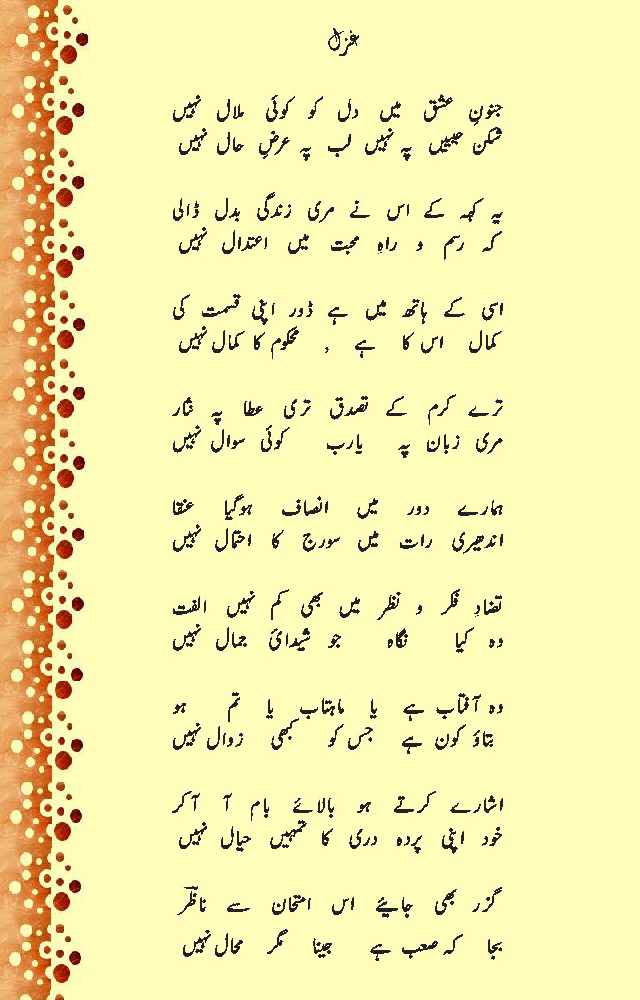 غزل
جنونِ عشق میں دل کو کوئی ملال نہیں
شکن جبیں پہ نہیں لب پہ عرضِ حال نہیں
یہ کہہ کے اس نے مری زندگی بدل ڈالی
کہ رسم و راہِ محبت میں اعتدال نہیں
اسی کے ہاتھ میں ہے ڈور اپنی قسمت کی
کمال اس کا ہے , محکوم کا کمال نہیں
ترے کرم کے تصدق تری عطا پہ نثار
مری زبان پہ یارب کوئی سوال نہیں
ہمارے دور میں انصاف ہوگیا عنقا
اندھیری رات میں سورج کا احتمال نہیں
تضادِ فکر و نظر میں بھی کم نہیں الفت
وہ کیا نگاہ جو شیدائ جمال نہیں
وہ آفتاب ہے یا ماہتاب یا تم ہو
بتاؤ کون ہے جس کو کبھی زوال نہیں
اشارے کرتے ہو بالائے بام آ آ کر
خود اپنی پردہ دری کا تمہیں خیال نہیں
گزر بھی جایئے اس امتحان سے ناظر
بجا کہ صعب ہے جینا مگر محال نہیں